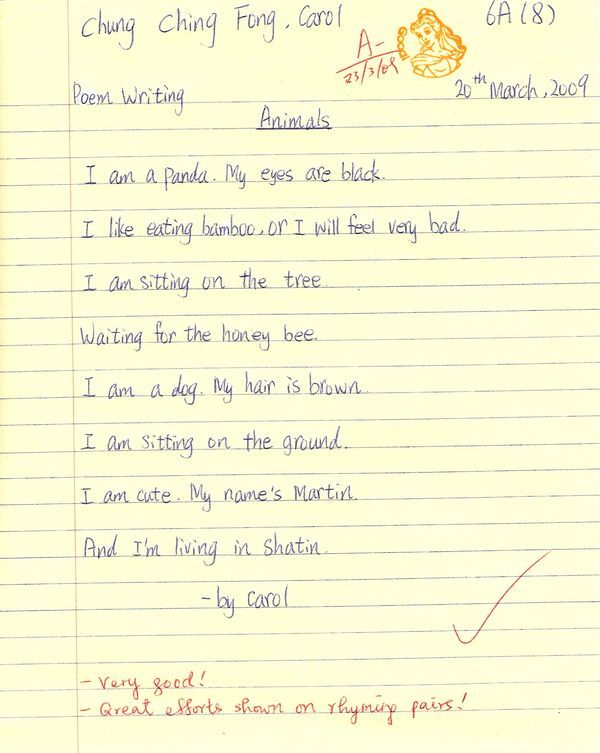 Chung Ching Fong, Carol 6A(8)
A-
23/3/09
GOOD
Poem Writing 20th March, 2009
Animals
I am a panda. My eyes are black.
I like eating bamboo, or I will feel very bad.
I am sitting on the tree
Waiting for the honey bee.
I am a dog. My hair is brown.
I am sitting on the ground.
I am cute. My name's Martin.
And I'm living in Shatin.
-by Carol
- Very good!
- Great efforts shown on rhyming pairs!